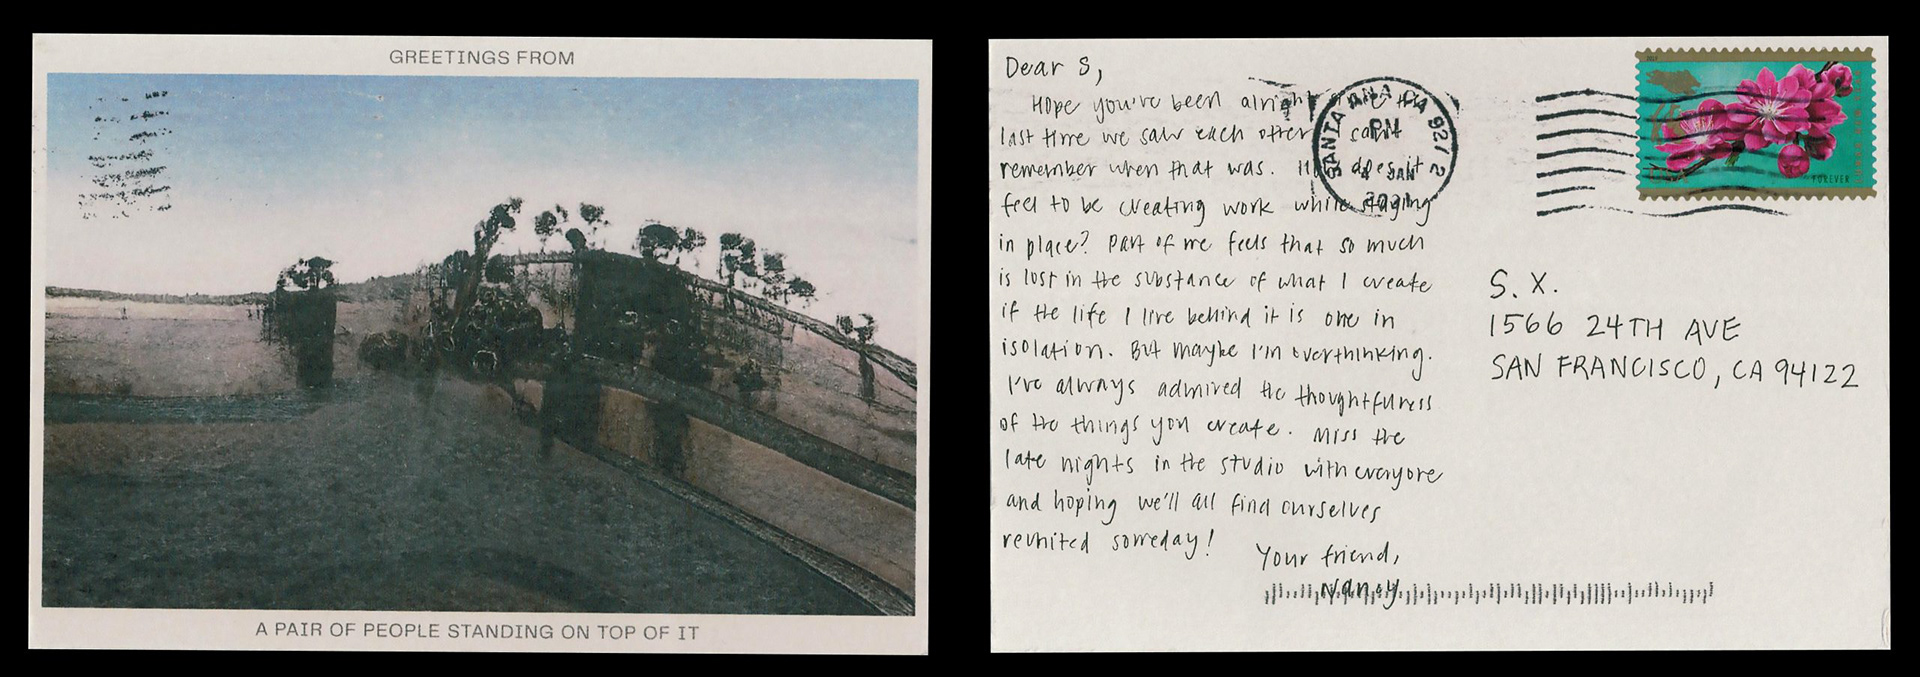 GREETINGS FROM
A PAIR OF PEOPLE STANDING ON TOP OF IT
Dear S,
Hope you've been alright since the
last time we saw each other I can't
remember when that was. How does it
feel to be creating work while staying
in place? Part of me feels that so much
is lost in the substance of what I create
if the life I live behind it is one in
isolation. But maybe I'm overthinking.
I've always admired the thoughtfulness
of the things you create. Miss the
late nights in the studio with everyone
and hoping we'll all find ourselves
reunited someday!
Your friend,
Nancy
SANTA ANA CA 92
PM
4 JAN
2021
FOREVER
S. X.
1566 24TH AVE
SAN FRANCISCO, CA 94122